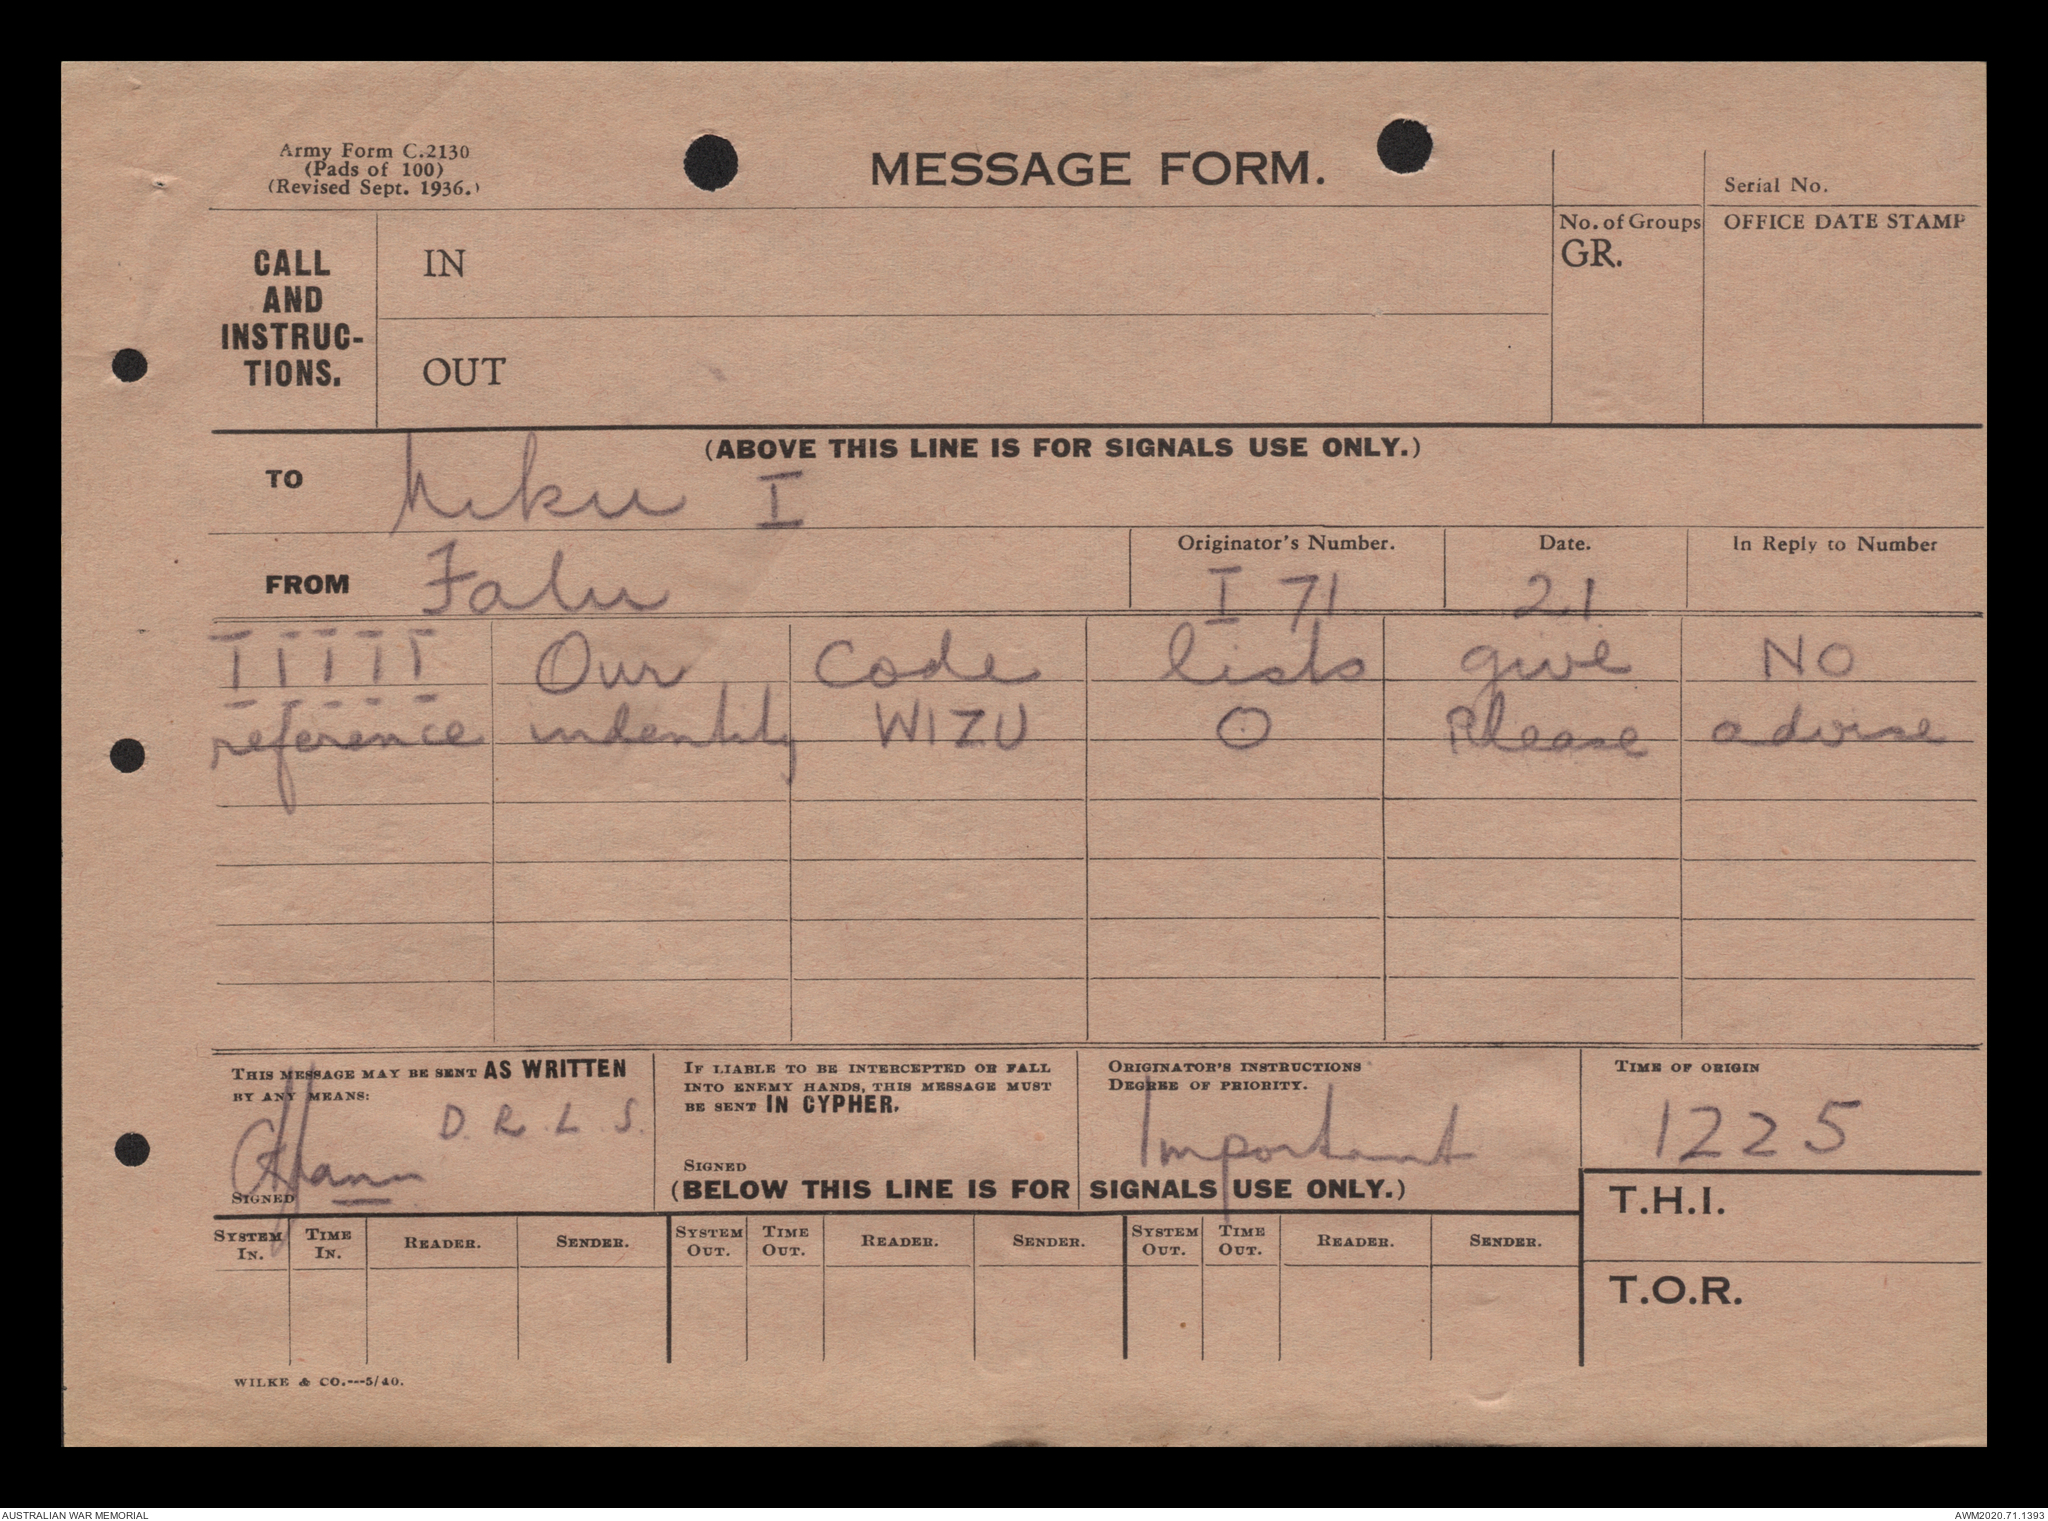 Army Form C.2130
(Pads of 100)
(Revised Sept. 1936.)
MESSAGE FORM.
Serial No.
CALL
AND
INSTRUC-
TIONS.
IN
OUT
No. of Groups
GR.
OFFICE DATE STAMP
(ABOVE THIS LINE IS FOR SIGNALS USE ONLY.)
TO I
FROM
Originator's Number.
I 71
Date.
21
In Reply to Number
I I I I I Our Code lists give NO
reference indentity WIZU O Please advise
THIS MESSAGE MAY BE SENT AS WRITTEN
BY ANY MEANS:
D.R.L.S.
SIGNED
IF LIABLE TO BE INTERCEPTED OR FALL
INTO ENEMY HANDS, THIS MESSAGE MUST
BE SENT IN CYPHER.
SIGNED
ORIGINATOR'S INSTRUCTIONS
DEGREE OF PRIORITY.
Important
TIME OF ORIGIN
1225
(BELOW THIS LINE IS FOR SIGNALS USE ONLY.)
T.H.I.
T.O.R.
SYSTEM IN. TIME IN. READER. SENDER. SYSTEM OUT. TIME OUT. READER. SENDER. SYSTEM OUT. TIME OUT. READER. SENDER.
WILKE & CO.---5/40.
AUSTRALIAN WAR MEMORIAL
AWM2020.71.1393